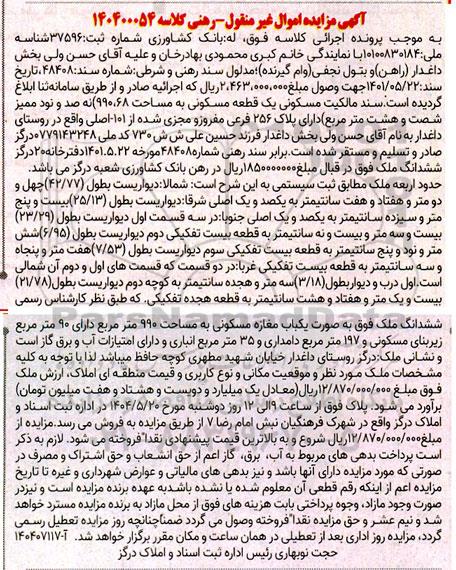 آگهی مزایده اموال غیر منقول-رهنی کلاسه ۱۴۰۴۰۰۰۵۴
به موجب پرونده اجرائی کلاسه فوق، له:بانک کشاورزی شماره ثبت:۳۷۵۹۶شناسه
ملی:۱۰۱۰۰۸۳۰۱۸۴با نمایندگی خانم کبری محمودی بهادرخان و علیه آقای حسن ولی بخش
داغدار (راهن)و بتول نجفی(وام گیرنده)؛مدلول سند رهنی و شرطی:شماره سند:۴۸۴۰۸،تاریخ
سند:۱۴۰۱/۰۵/۲۲جهت وصول مبلغ۲،۴۶۳،۰۰۰،۰۰۰ریال که اجرائیه صادر و از طریق سامانه ثنا ابلاغ
گردیده است.سند مالکیت مسکونی یک قطعه مسکونی به مساحت ۹۹۰.۶۸(نه صد و نود ممیز
شصت و هشت متر مربع)دارای پلاک ۲۵۶ فرعی مفروز و مجزی شده از ۱۰۱-اصلی واقع در روستای
داغدار به نام آقای حسن ولی بخش داغدار فرزند حسین علی ش ش ۷۳۰ کد ملی ۰۷۷۹۱۴۳۲۴۸درگز
صادر و تسلیم و مستقر شده است.برابر سند رهنی شماره۴۸۴۰۸مورخه ۱۴۰۱.۵.۲۲دفترخانه۲۰درگز
ششدانگ ملک فوق در قبال مبلغ۱۸۵۰۰۰۰۰۰۰ریال در رهن بانک کشاورزی شعبه درگز می باشد.
حدود اربعه ملک مطابق ثبت سیستمی به این شرح است: شمالا:دیواریست بطول (۴۲/۷۷)چهل و
دو متر و هفتاد و هفت سانتیمتر به یکصد و یک اصلی شرقا:دیواریست بطول (۲۵/۱۳)بیست و پنج
متر و سیزده سانتیمتر به یکصد و یک اصلی جنوبا:در سه قسمت اول دیواریست بطول (۲۳/۲۹)
بیست و سه متر و بیست و نه سانتیمتر به قطعه بیست تفکیکی دوم دیواریست بطول (۶/۹۵)شش
متر و نود و پنج سانتیمتر به قطعه بیست تفکیکی سوم دیواریست بطول (۷/۵۳)هفت متر و پنجاه
و سه سانتیمتر به قطعه بیست تفکیکی غربا:در دو قسمت که قسمت های اول و دوم آن شمالی
است اول درب و دیواربطول(۳/۱۸)سه متر و هجده سانتیمتر به کوچه دوم دیواریست بطول(۲۱/۷۸)
بیست و یک متر و هفتاد و هشت سانتیمتر به قطعه هجده تفکیکی. که طبق نظر کارشناس رسمی
ششدانگ ملک فوق به صورت یکباب مغازه مسکونی به مساحت ۹۹۰ متر مربع دارای ۹۰ متر مربع
زیربنای مسکونی و ۱۹۷ متر مربع دامداری و ۳۵ متر مربع انباری و دارای امتیازات آب و برق گاز است
و نشانی ملک:درگز روستای داغدار خیابان شهید مطهری کوچه حافظ میباشد لذا با توجه به کلیه
مشخصات ملک مورد نظر و موقعیت مکانی و نوع کاربری و قیمت منطقه ای املاک، ارزش ملک
فوق مبلغ ۱۲/۸۷۰/۰۰۰/۰۰۰ریال(معادل یک میلیارد و دویست و هشتاد و هفت میلیون تومان)
برآورد می شود. پلاک فوق از ساعت ۹الی ۱۲ روز دوشنبه مورخ ۱۴۰۴/۵/۲۰ در اداره ثبت اسناد و
املاک درگز واقع در شهرک فرهنگیان نبش امام رضا ۷ از طریق مزایده به فروش می رسد.مزایده از
مبلغ۱۲/۸۷۰/۰۰۰/۰۰۰ریال شروع و به بالاترین قیمت پیشنهادی نقدا"فروخته می شود. لازم به ذکر
است پرداخت بدهی های مربوط به آب، برق، گاز اعم از حق انشعاب و حق اشتراک و مصرف در
صورتی که مورد مزایده دارای آنها باشد و نیز بدهی های مالیاتی و عوارض شهرداری و غیره تا تاریخ
مزایده اعم از اینکه رقم قطعی آن معلوم شده یا نشده باشدبه عهده برنده مزایده است و نیزدر
صورت وجود مازاد، وجوه پرداختی بابت هزینه های فوق از محل مازاد به برنده مزایده مسترد خواهد
شد و نیم عشر و حق مزایده نقدا"فروخته وصول می گردد ضمناچنانچه روز مزایده تعطیل رسمی
گردد، مزایده روز اداری بعد از تعطیلی در همان ساعت و مکان مقرر برگزار خواهد شد. آ-۱۴۰۴۰۷۱۱۷
حجت نوبهاری رئیس اداره ثبت اسناد و املاک درگز